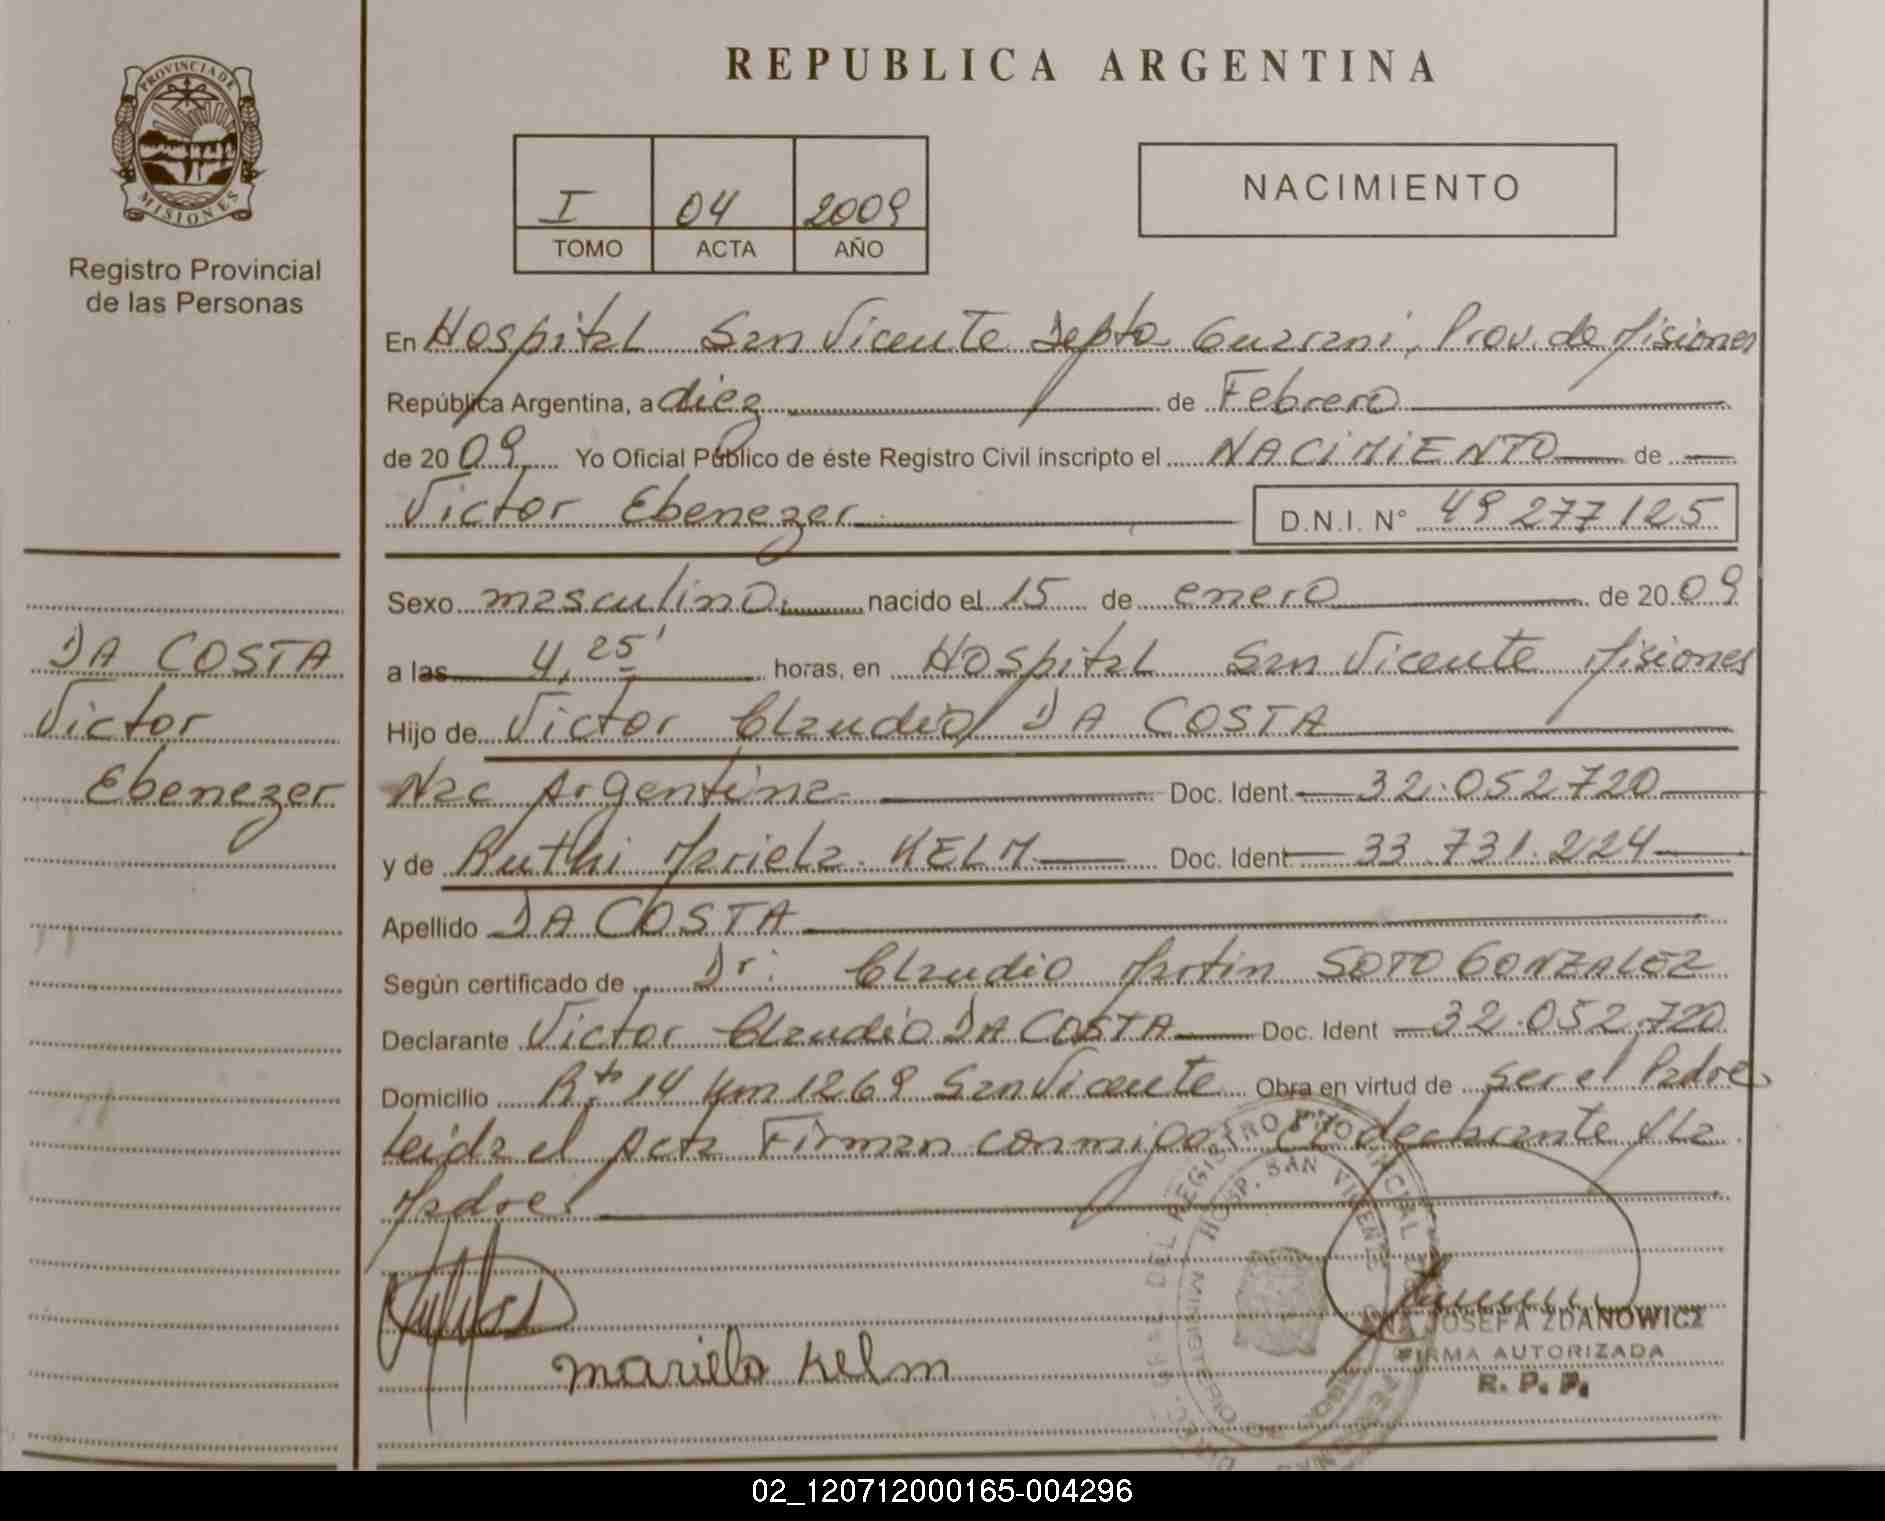 REPUBLICA ARGENTINA
PROVINCIA DE
MISIONES
Registro Provincial
de las Personas
I 04 2009
TOMO ACTA AÑO
NACIMIENTO
En Hospital San Vicente Depto Guarani, Prov. de Misiones
República Argentina, a diez de Febrero
de 2009 Yo Oficial Público de éste Registro Civil inscripto el NACIMIENTO de
Victor Ebenezer D.N.I. N° 49 277 125
Sexo masculino nacido el 15 de enero de 2009
a las 4,25' horas, en Hospital San Vicente Misiones
Hijo de Victor Claudio DA COSTA
Nac Argentina Doc. Ident. 32.052.720
y de Ruthi Mariela KELM Doc. Ident 33.731.224
Apellido DA COSTA
Según certificado de Dr: Claudio Martin SOTO GONZALEZ
Declarante Victor Claudio DA COSTA Doc. Ident 32.052.720
Domicilio Rta 14 Km 1269 San Vicente Obra en virtud de ser el Padre
Leida el acta Firman conmigo: el declarante y la
Madre
DA COSTA
Victor
Ebenezer
mariela kelm
REGISTRO PROVINCIAL
HOSP. SAN VICENTE
MINISTERIO DE
ANA JOSEFA ZDANOWICZ
FIRMA AUTORIZADA
R. P. P.
02_120712000165-004296